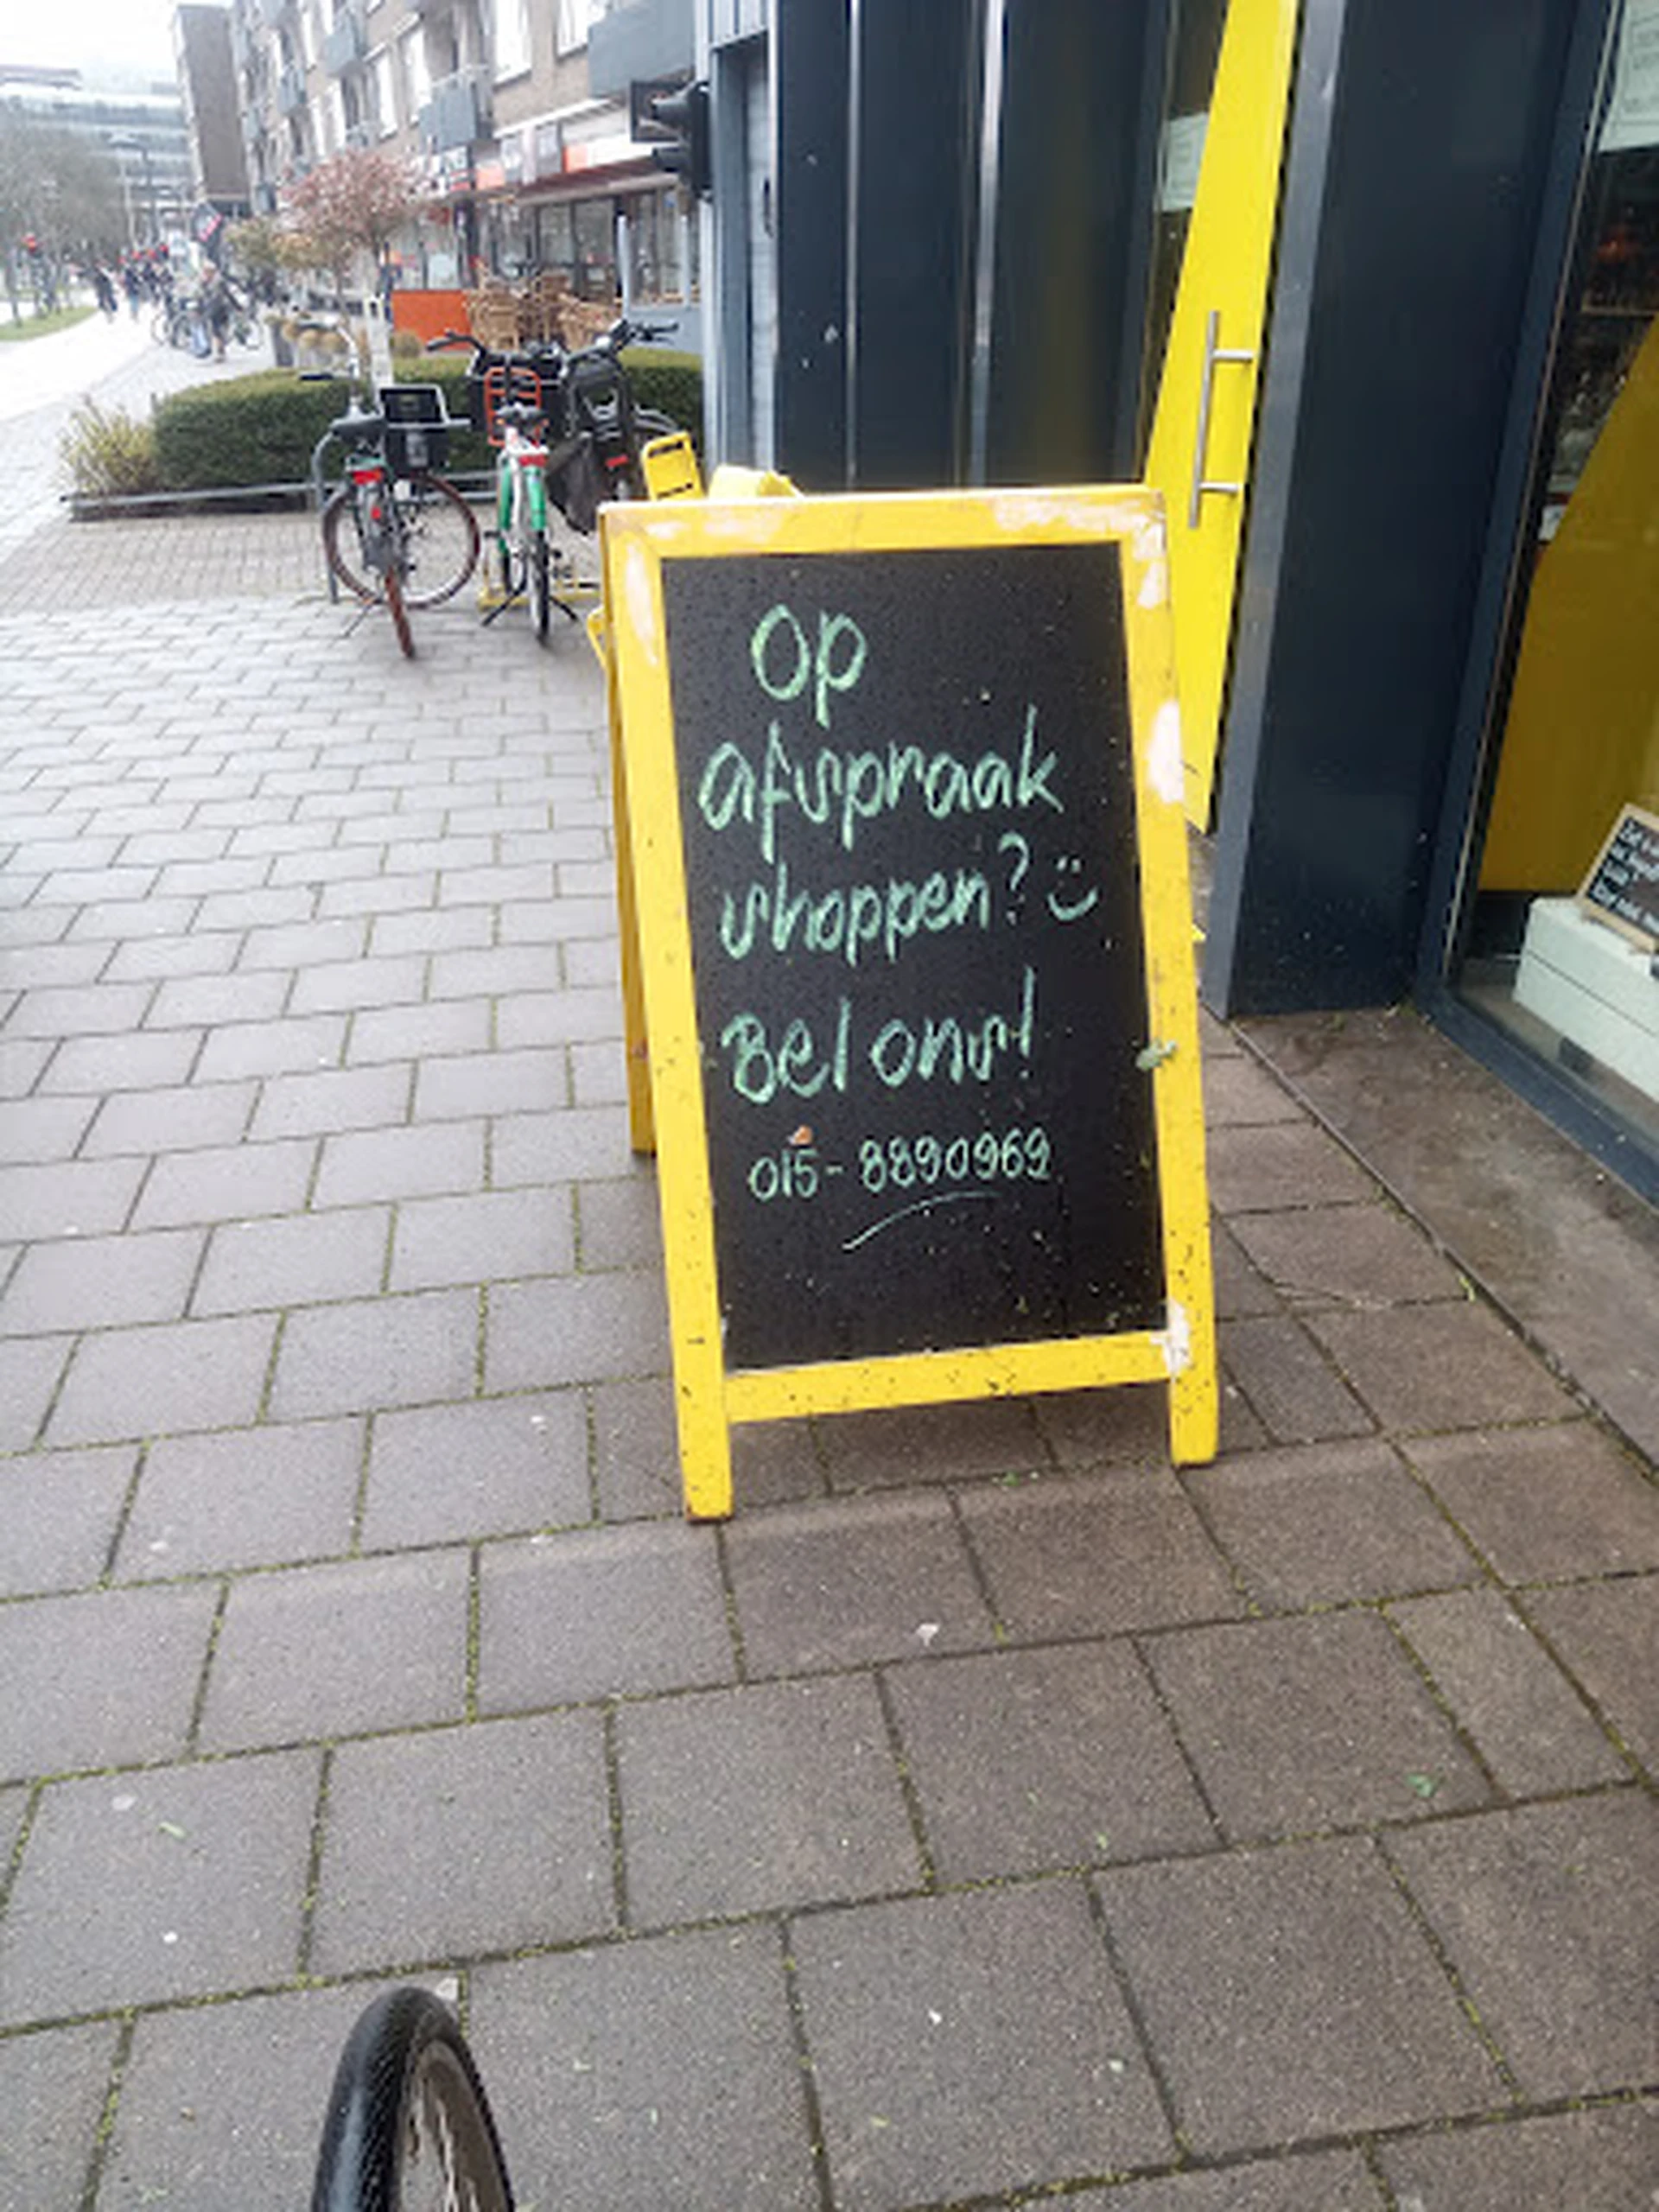 Op
afspraak
shoppen? :)
Bel ons!
015-8890969